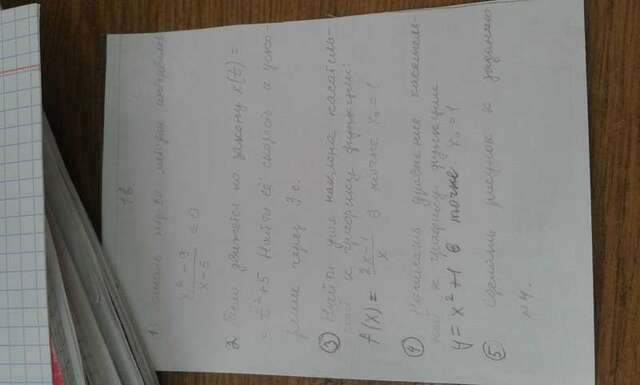 1в.
1. Решить нер-во методом интервалов
x² - 9 / x - 5 ≤ 0
2 Тело движется по закону x(t) =
= t² + 5 Найти её скорость и уско-
рение через 3 с.
③ Найти угол наклона касатель-
ной к графику функции
f(x) = 2x-1 / x в точке x₀ = 1
④ Написать уравнение касатель-
ной к графику функции
y = x² + 1 в точке x₀ = 1
⑤ Сделать рисунок к заданию
№4.